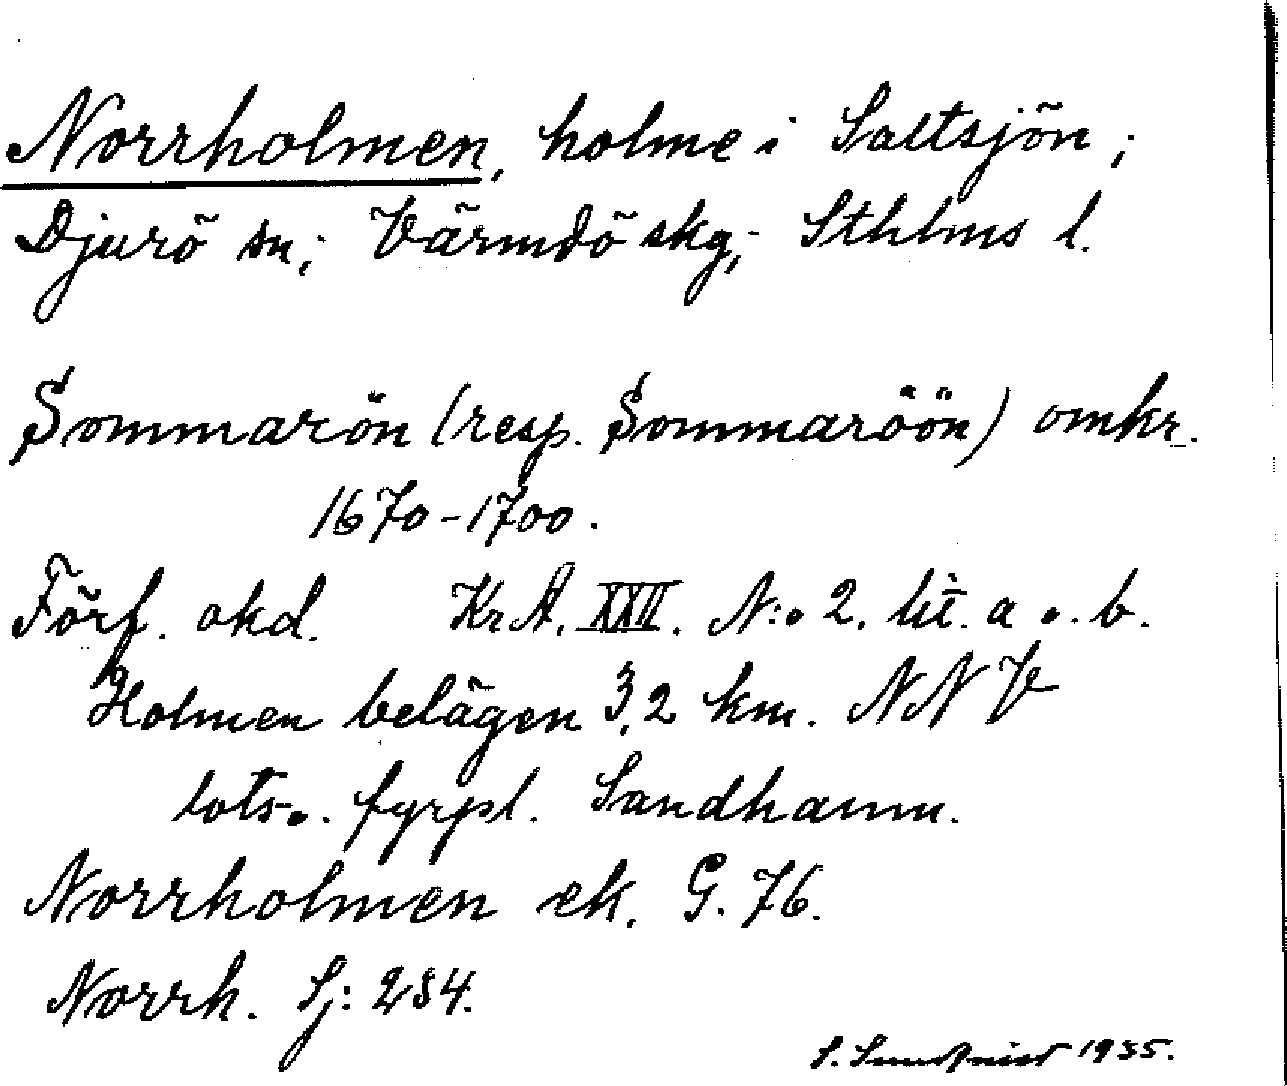 Norrholmen, holme i Saltsjön;
Djurö sn; Värmdö skg; Sthlms l.
Sommarön (resp. Sommaröön) omkr.
1670-1700.
Förf. okd. KrA. XXII. N:o 2. lit. a o. b.
Holmen belägen 3,2 km. NNV
lots- o. fyrpl. Sandhamn.
Norrholmen ek. G. 76.
Norrh. Sj: 284.
S. Sundqvist 1935.